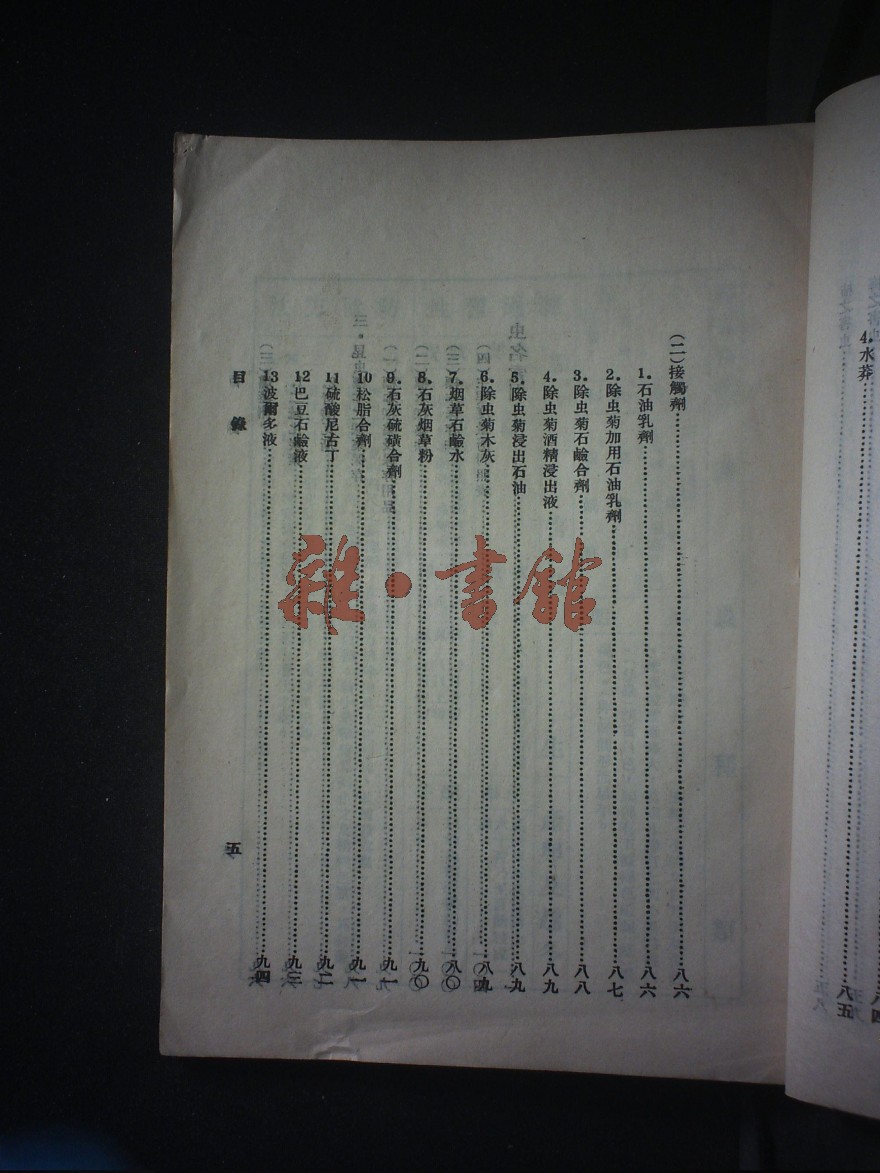 (二)接觸劑……八六
1.石油乳劑……八六
2.除虫菊加用石油乳劑……八七
3.除虫菊石鹼合劑……八八
4.除虫菊酒精浸出液……八九
5.除虫菊浸出石油……八九
6.除虫菊木灰……八九
7.烟草石鹼水
8.石灰烟草粉……九〇
9.石灰硫磺合劑……九一
10松脂合劑……九一
11硫酸尼古丁……九二
12巴豆石鹼液……九三
13波爾多液……九四
目錄
五
4.水莽
八五
雜·書館